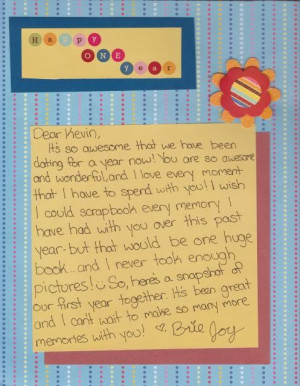 Happy
ONE
year
Dear Kevin,
It's so awesome that we have been
dating for a year now! You are so awesome
and wonderful, and I love every moment
that I have to spend with you! I wish
I could scrapbook every memory I
have had with you over this past
year-but that would be one huge
book...and I never took enough
pictures! So, here's a snapshot of
our first year together. It's been great
and I can't wait to make so many more
memories with you! ♡ Brie Joy